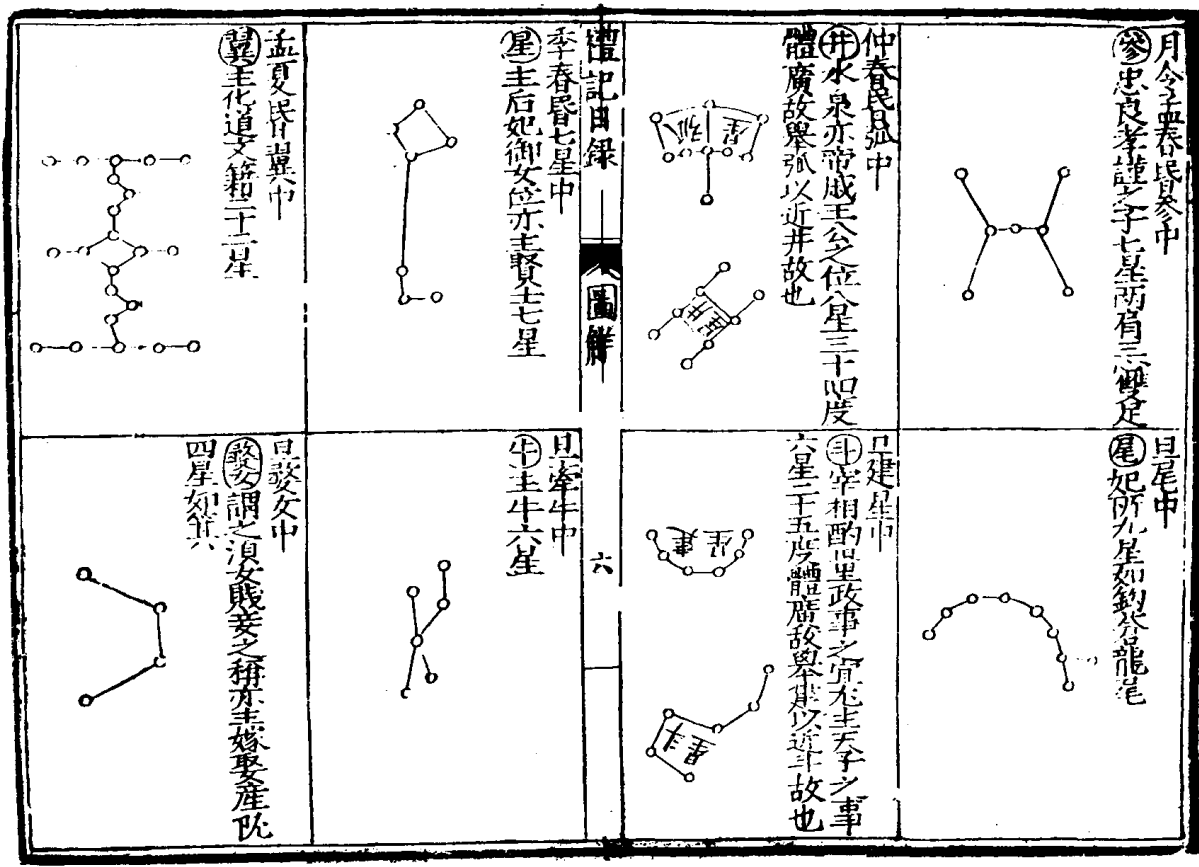 月令孟春昏參中
參忠良孝謹之子七星两肩三雙足
旦尾中
尾妃所九星如鈎蒼龍尾
仲春昏弧中
井水泉亦帝戚王公之位八星三十四度
體廣故舉弧以近井故也
弧星
井星
旦建星中
斗宰相酌量政事之宜尤主天子之事
六星二十五度體廣故舉建以近斗故也
建星
斗星
禮記目録
圖解
六
季春昏七星中
星主后妃御女位亦主賢士七星
旦牽牛中
牛主牛六星
孟夏昏翼中
翼主化道文籍二十二星
旦婺女中
婺謂之湏女賎妾之稱亦主嫁娶産
四星如箕